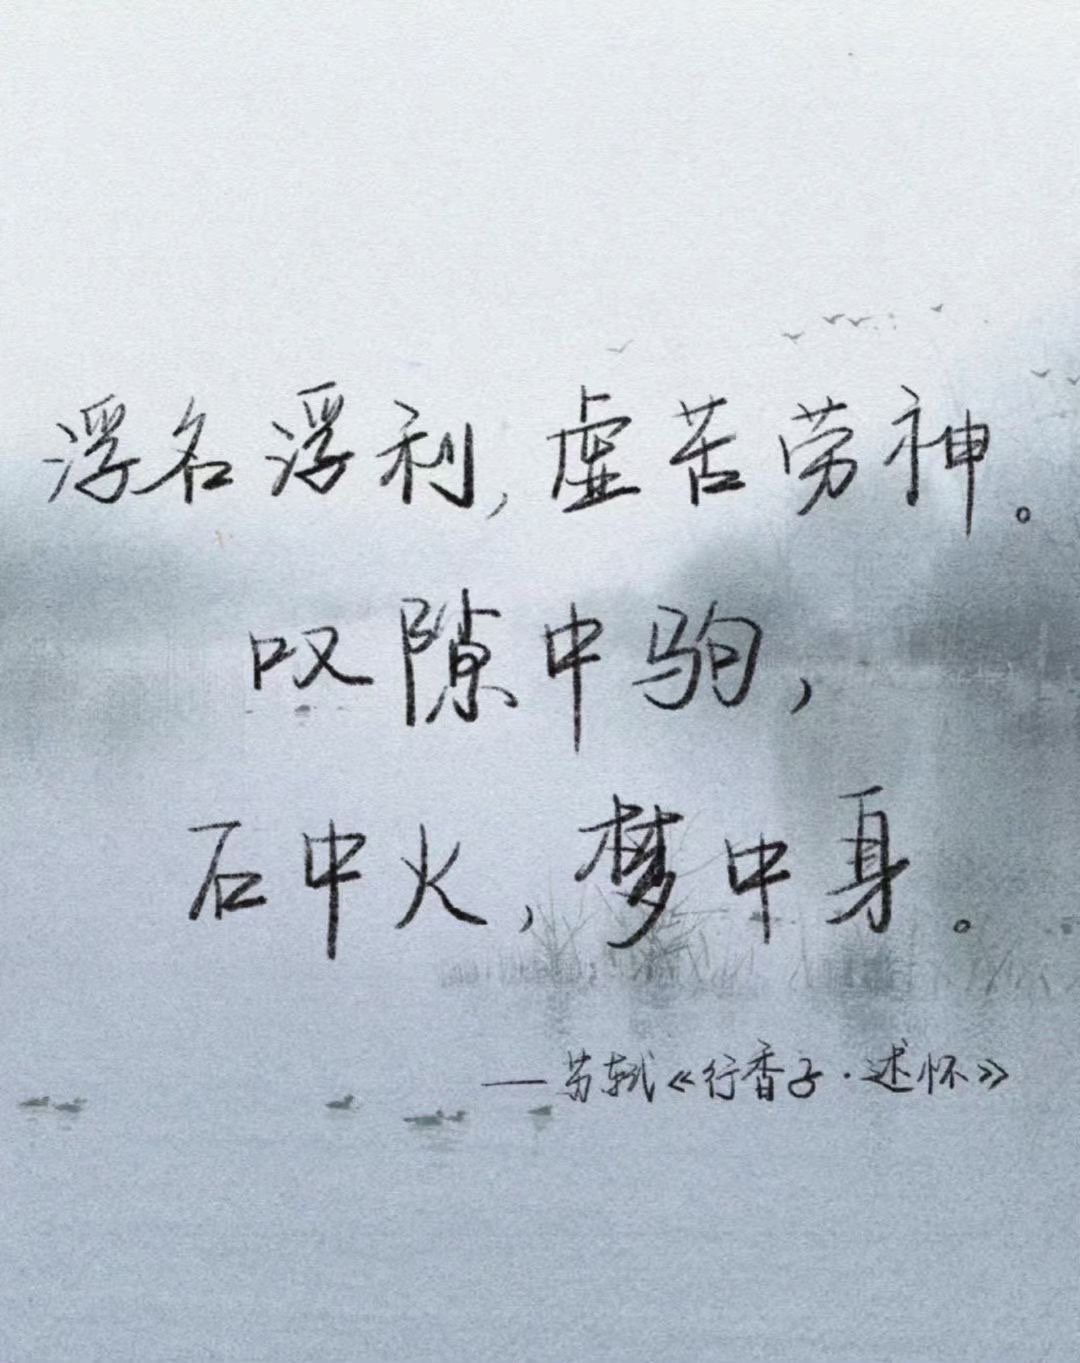 浮名浮利,虚苦劳神。
叹隙中驹,
石中火,梦中身。
——苏轼《行香子·述怀》